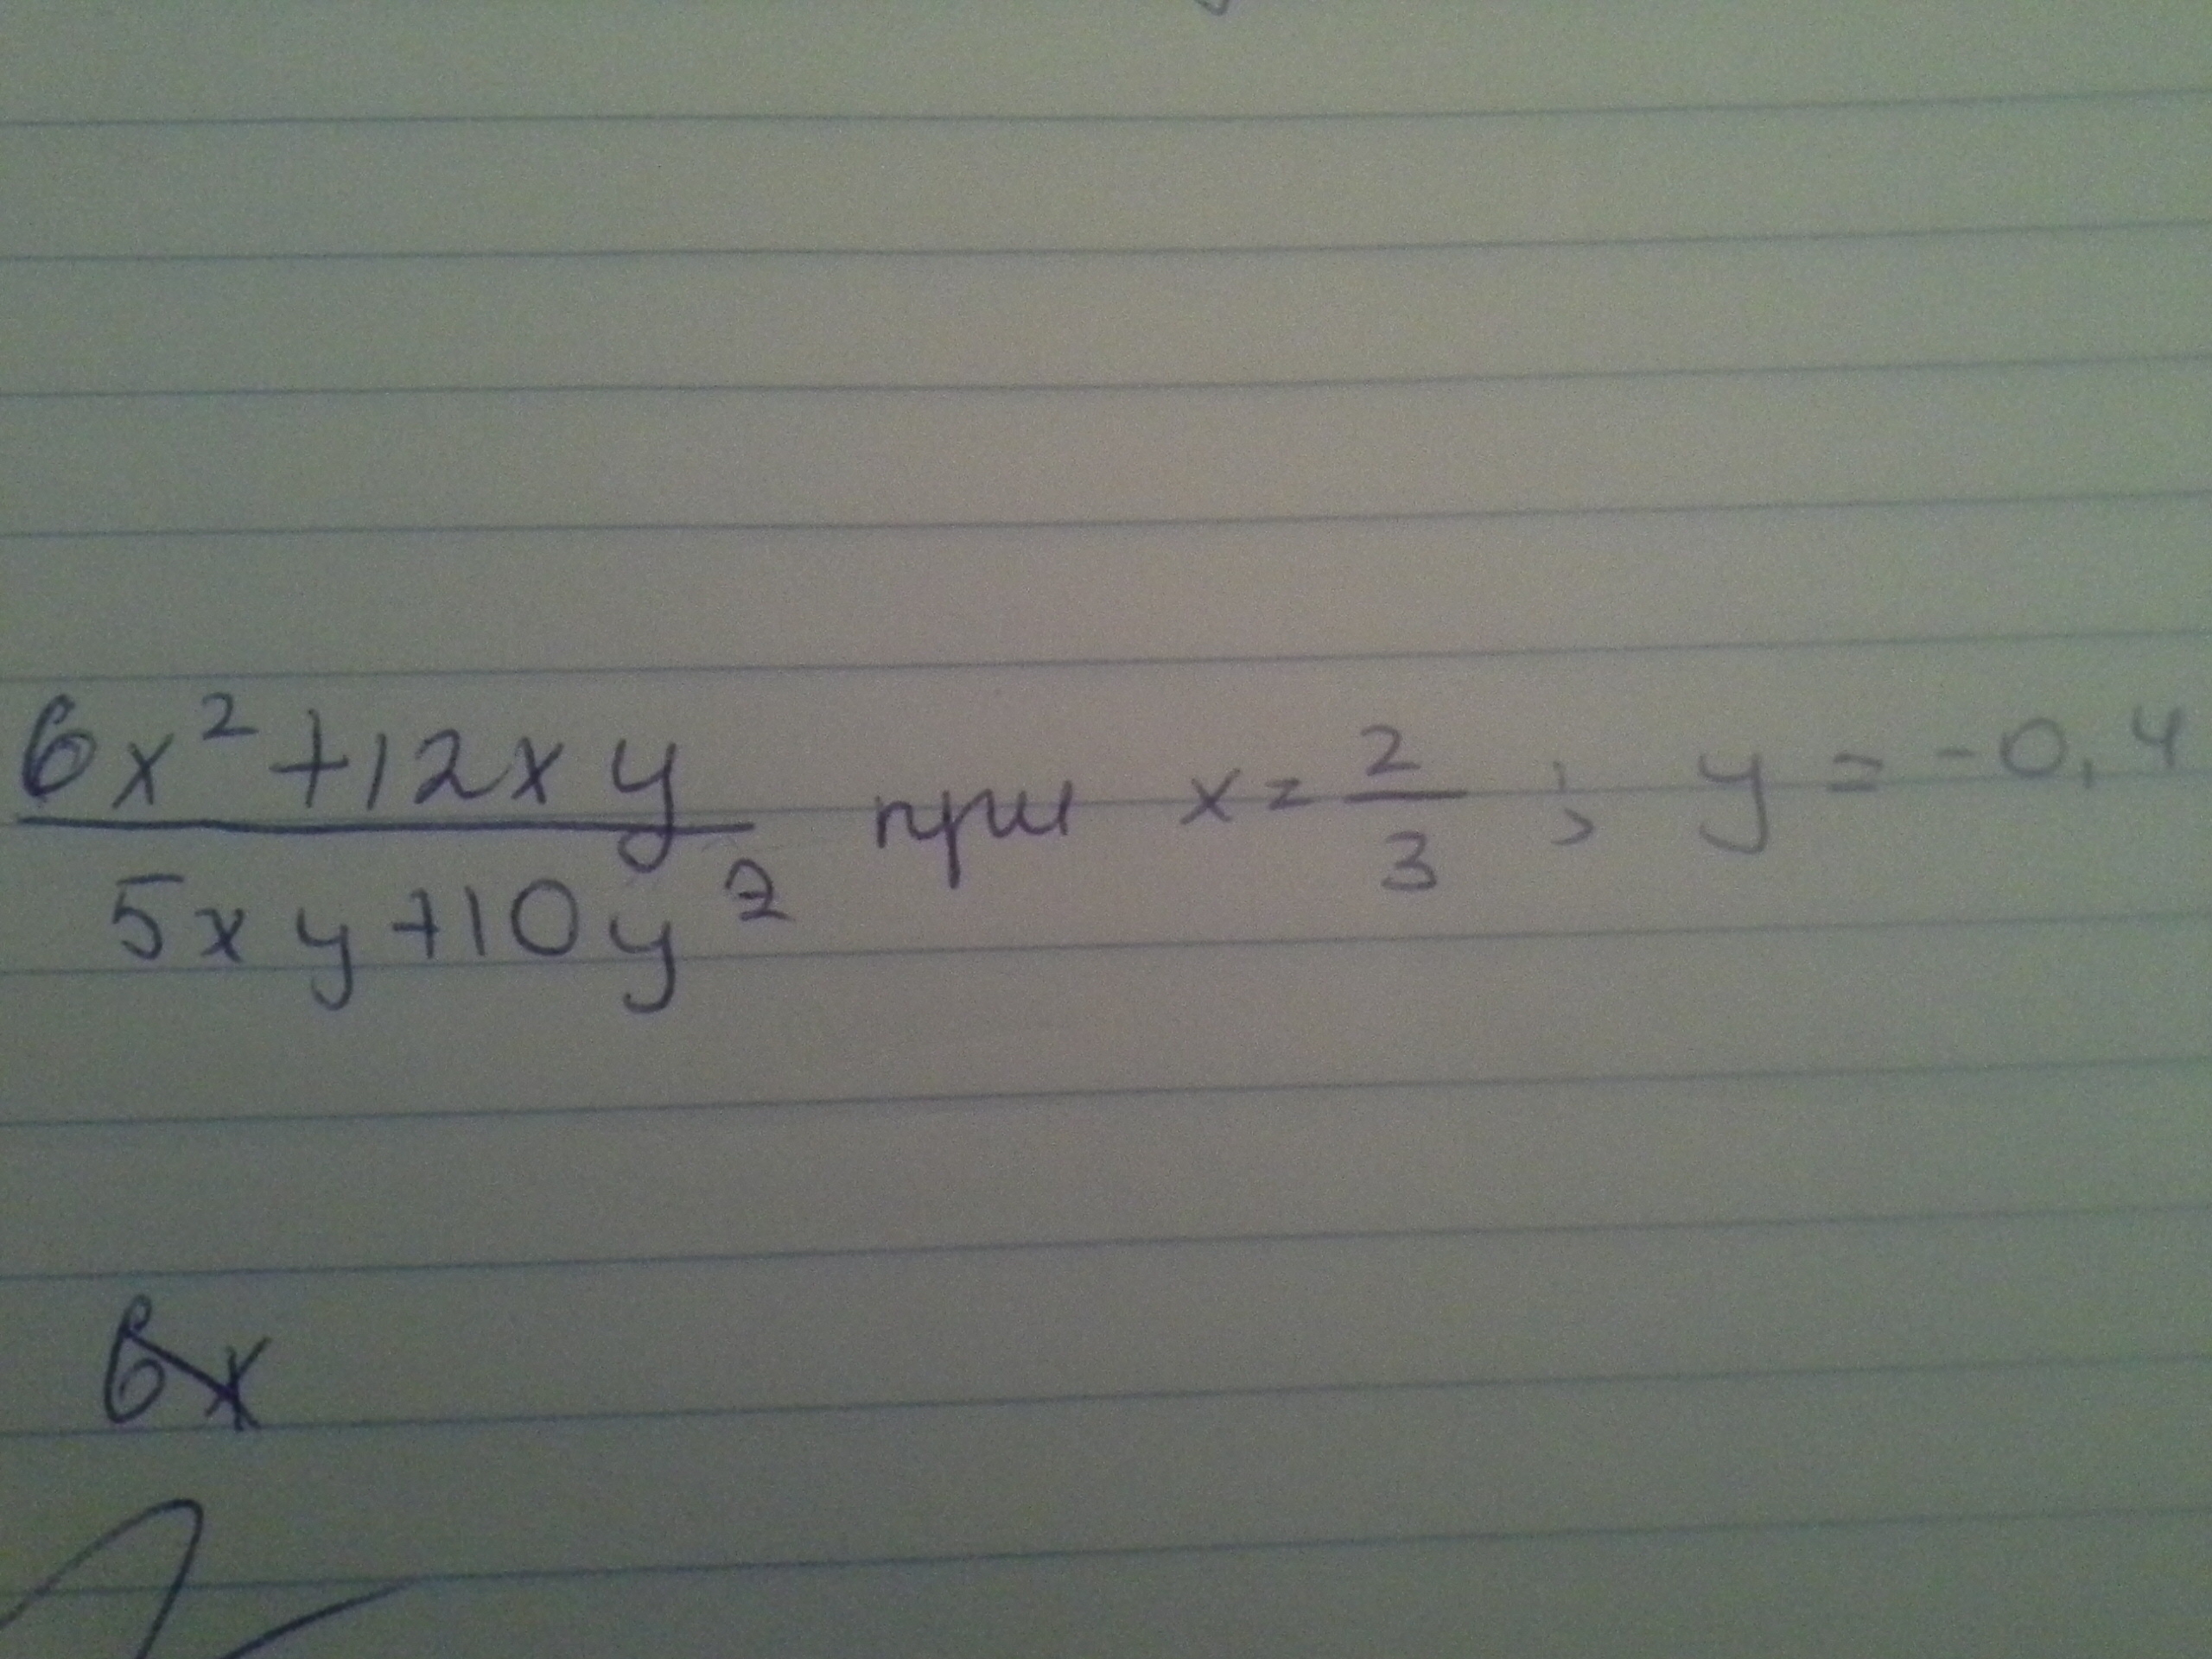 6x²+12xy / 5xy+10y² при x=2/3 ; y = -0,4
6x